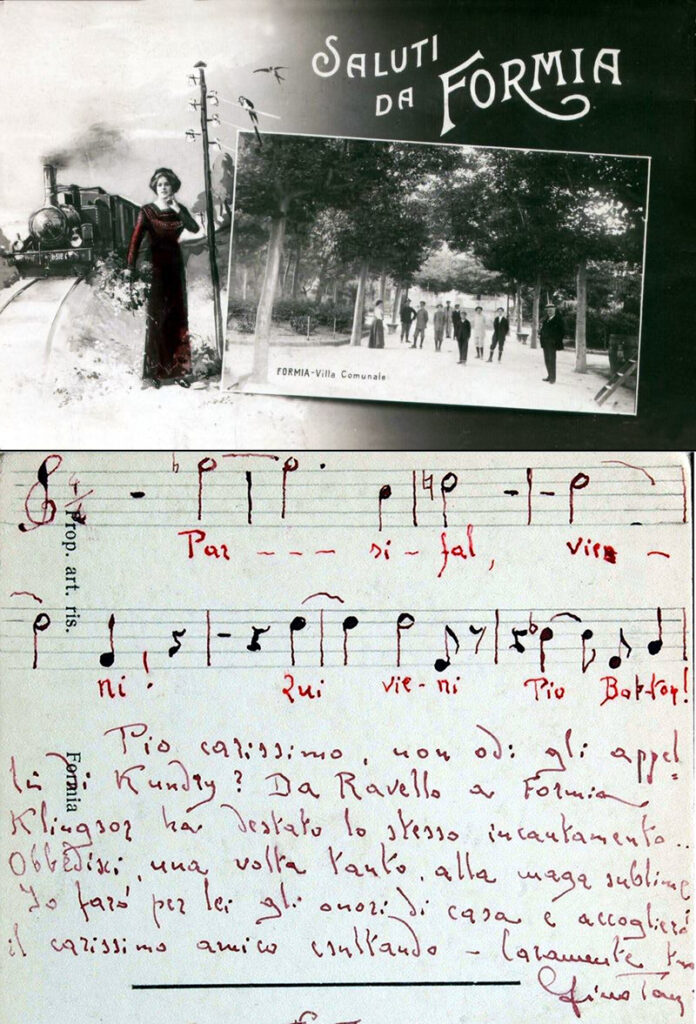 SALUTI
DA FORMIA
FORMIA - Villa Comunale
Par - - - si - fal, vie -
ni! Qui vie - ni Pio Bak-Kop!
Prop. art. ris.
Formia
Pio carissimo, non odi gli appel=
li di Kundry? Da Ravello a Formia
Klingsor ha destato lo stesso incantamento..
Obbedisci, una volta tanto, alla maga sublime
Io farò per lei gli onori di casa e accoglierò
il carissimo amico esultando - Caramente tuo
Gino